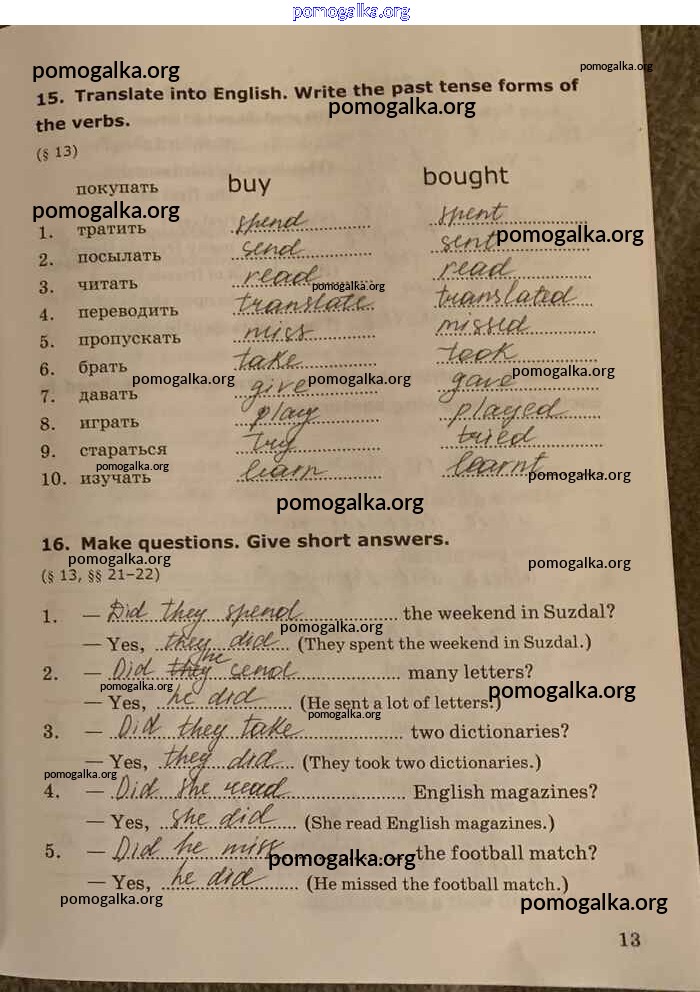 pomogalka.org
pomogalka.org pomogalka.org
15. Translate into English. Write the past tense forms of
the verbs. pomogalka.org
(§ 13)
покупать buy bought
pomogalka.org
1. тратить spend spent
2. посылать send sent pomogalka.org
3. читать read read
pomogalka.org
4. переводить translate translated
5. пропускать miss missed
6. брать take took
pomogalka.org pomogalka.org pomogalka.org
7. давать give gave
8. играть play played
9. стараться try tried
pomogalka.org pomogalka.org
10. изучать learn learnt
pomogalka.org
16. Make questions. Give short answers.
pomogalka.org pomogalka.org
(§ 13, §§ 21–22)
1. — Did they spend the weekend in Suzdal?
pomogalka.org
— Yes, they did (They spent the weekend in Suzdal.)
2. — Did they he send many letters?
pomogalka.org pomogalka.org
— Yes, he did (He sent a lot of letters.)
pomogalka.org
3. — Did they take two dictionaries?
— Yes, they did (They took two dictionaries.)
pomogalka.org
4. — Did she read English magazines?
— Yes, she did (She read English magazines.)
5. — Did he miss the football match?
pomogalka.org
— Yes, he did (He missed the football match.)
pomogalka.org pomogalka.org
13